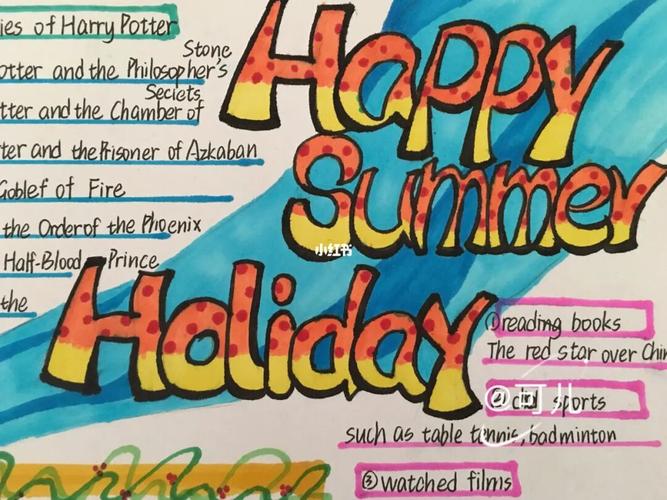 ies of Harry Potter
otter and the Philosopher's
Stone
tter and the Chamber of
Seciets
ter and the Prisoner of Azkaban
Goblef of Fire
the Order of the Phoenix
Half-Blood Prince
the
Happy
Summer
Holiday
小红书
①reading books
The red star over Chin
②did sports
@可儿
such as table tennis, badminton
③watched films